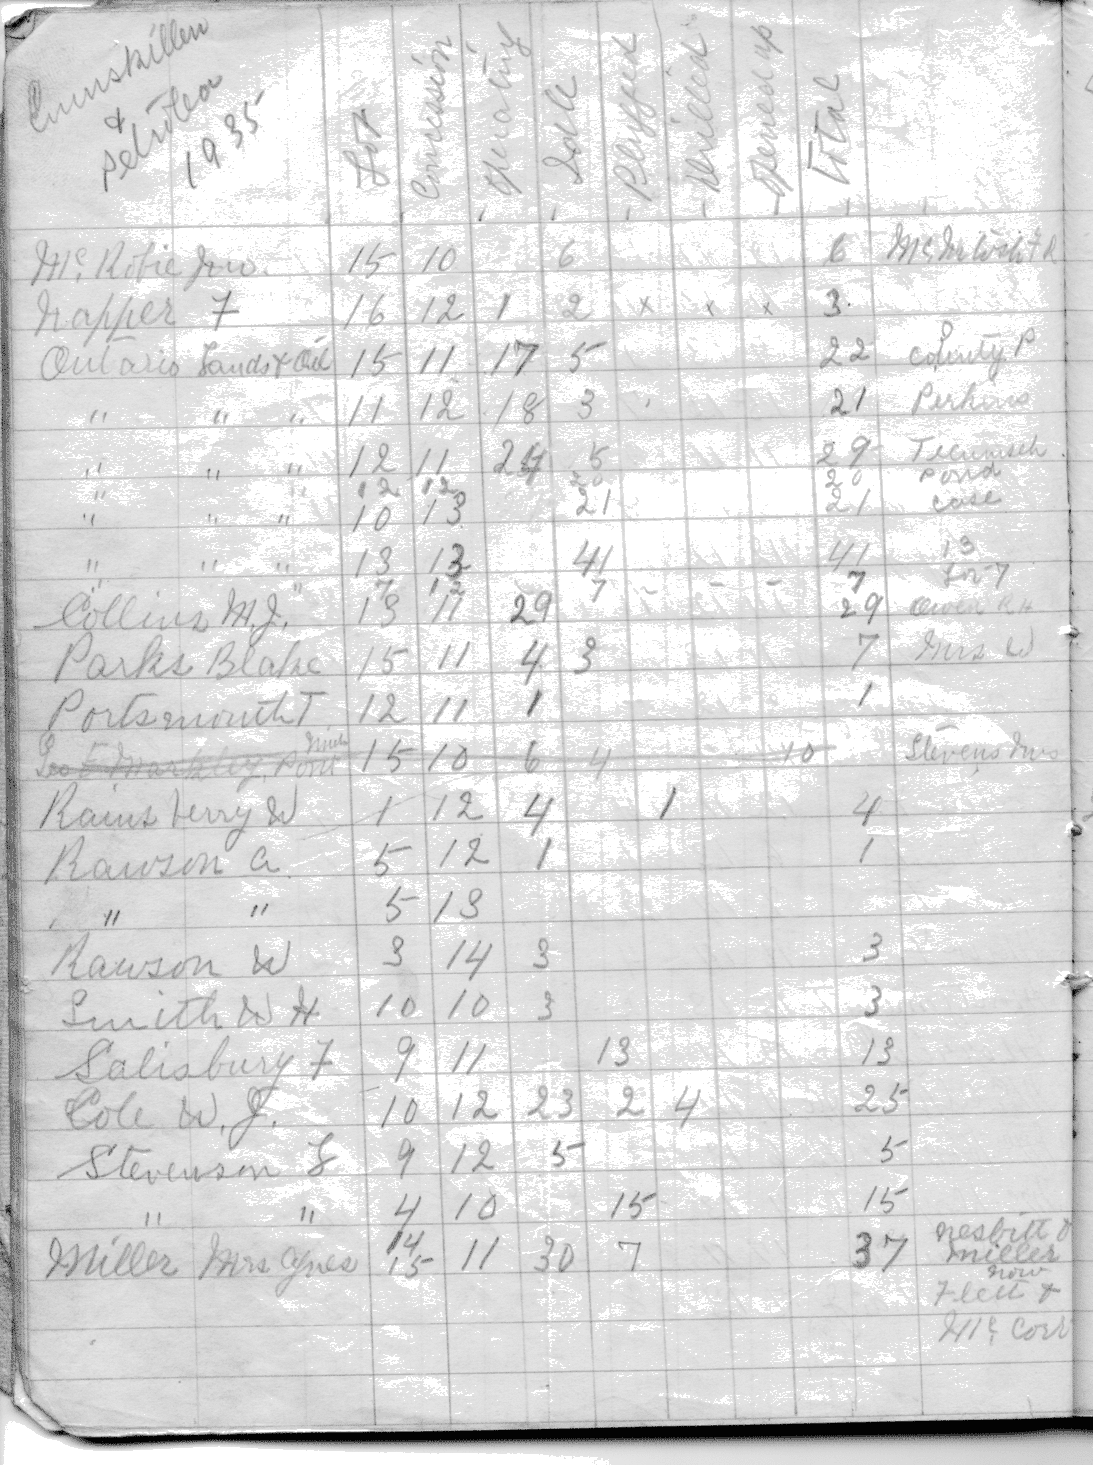 Enniskillen
&
Petrolea
1935
Lot Concession Operating Idle Plugged Drilled Opened up Total
Mc Robie Jno. 15 10 6 6
Napper F 16 12 1 2 x x x 3
Ontario Lands & Oil 15 11 17 5 22 County P
" " " 11 12 18 3 21 Perkins
" " " 12 11 24 5 29 Tecumseh
" " 12 12 20 20 Pond
" " " 10 13 21 21 Case
" " " 13 13 41 41 13
" " 7 12 7 - - - 7 Lot 7
Collins M.J. 13 11 29 29 Owen
Parks Blake 15 11 4 3 7 Mrs W
Portsmouth T 12 11 1 1
Geo E Markley 15 10 6 4 10 Stevens Mrs
Rainsberry W 1 12 4 1 4
Rawson A. 5 12 1 1
" " 5 13
Rawson W 3 14 3 3
Smith W H 10 10 3 3
Salisbury F 9 11 13 13
Cole W. J. 10 12 23 2 4 25
Stevenson 9 12 5 5
" " 4 10 15 15
Miller Mrs Agnes 14 15 11 30 7 37 Nesbitt &
Miller
now
Flett &
Mc